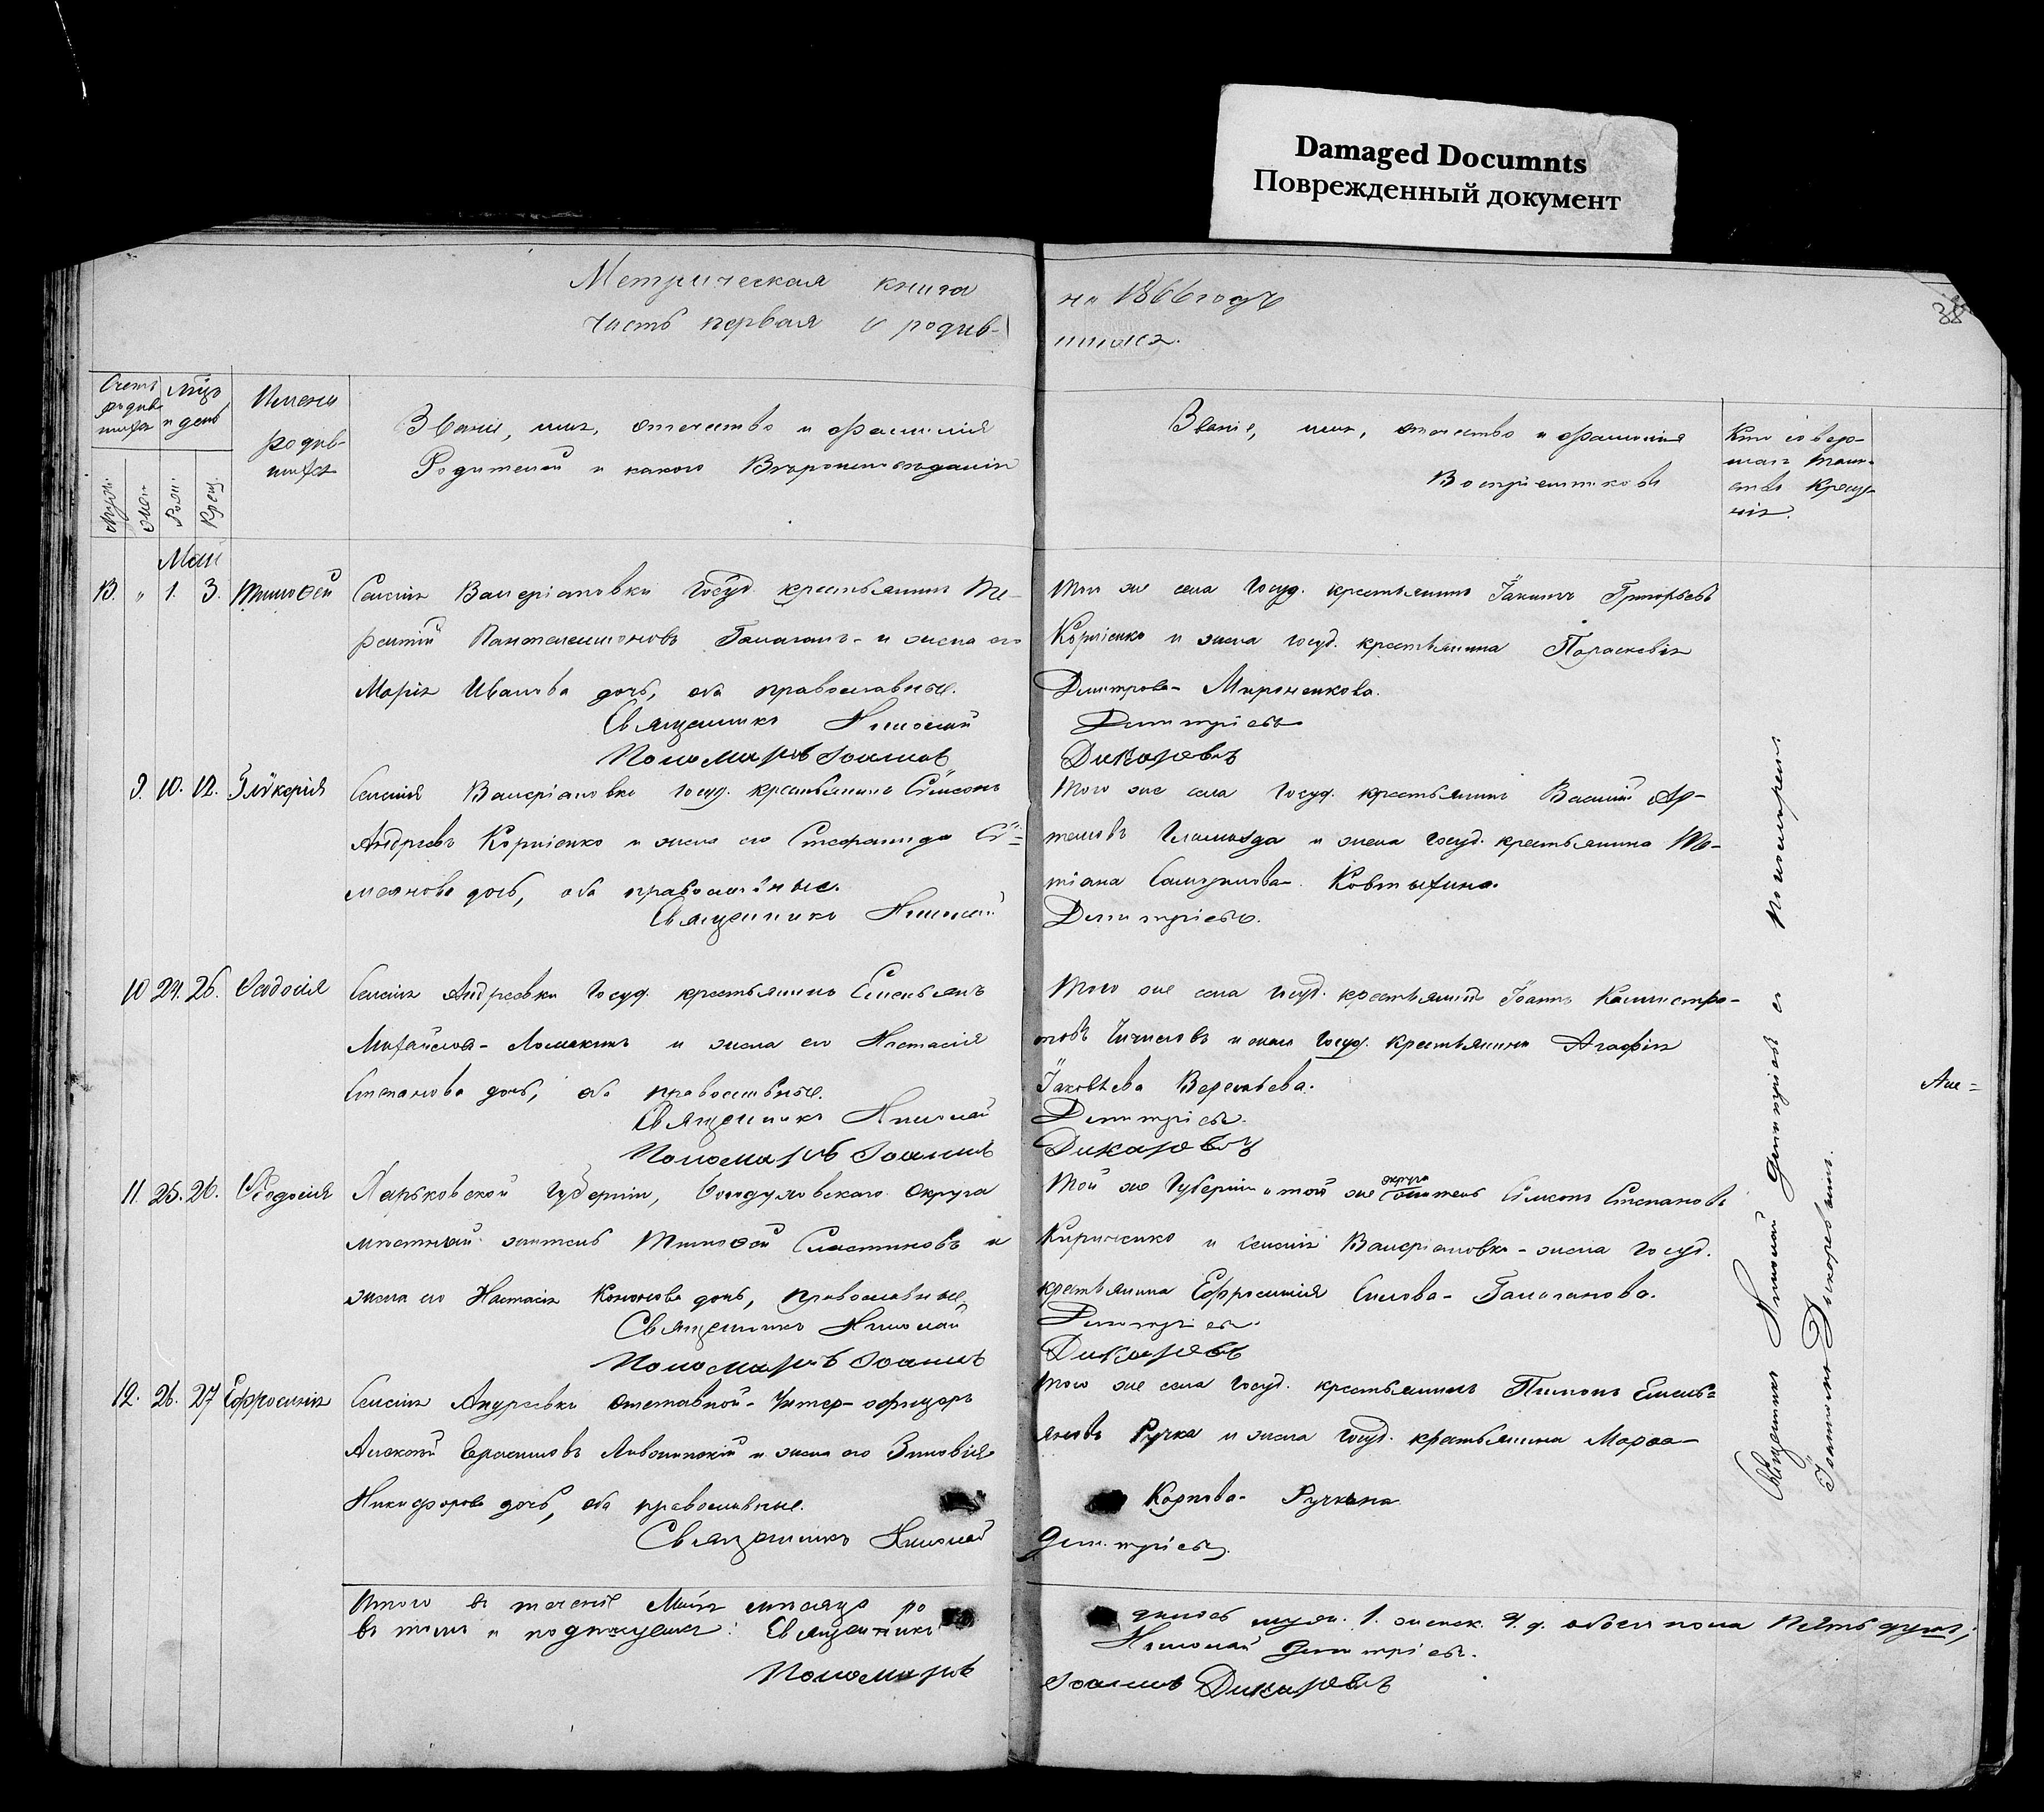 Damaged Documnts
Поврежденный документ
Метрическая книга
на 1866 годъ
часть первая о родив-
шихся.
38
Счетъ родив-шихся
Мѣц. и день
Имена родив-шихся
Званіе, имя, отечество и фамилія
Родителей и какого Вѣроисповѣданія
Званіе, имя, отечество и фамилія
Воспріемниковъ
Кто совер-
шалъ таин-
ство Креще-
нія.
Рож.
Крещ.
Май
13. " 1. 3. Тимоѳей
Селенія Валеріановки Госуд. крестьянинъ Те-
рентій Пантелеимоновъ Галаганъ и жена его
Марія Иванова дочь, оба православные.
Священникъ Николай
Пономарь Іоаннъ
Того же села Госуд. крестьянинъ Іакимъ Григорьевъ
Корніенко и жена госуд. крестьянина Параскевія
Димитрова Мироненкова.
Димитріевъ
Дикаревъ
9. 10. 12. Гликерія
Селенія Валеріановки госуд. крестьянинъ Сѵмеонъ
Андреевъ Корніенко и жена его Стефанида Сѵ=
меонова дочь, оба православные.
Священникъ Николай
Того же села Госуд. крестьянинъ Василій Ар-
темовъ и жена Госуд. крестьянина Та-
тіана Самуилова
Димитріевъ.
10 24. 26. Ѳеодосія
Селенія Андреевки Госуд. крестьянинъ Емельянъ
Михайловъ Ломакинъ и жена его Настасія
Степанова дочь, оба православные.
Священникъ Николай
Пономарь Іоаннъ
Того же села госуд. крестьянинъ Іоаннъ Каллистра-
товъ и жена Госуд. крестьянина Агафія
Іаковлева
Димитріевъ.
Дикаревъ
Але=
11. 25. 26. Ѳеодосія
Харьковской Губерніи, Богодуховскаго округа
мѣстный житель Тимоѳей Сластиновъ и
жена его Настасія Кононова дочь, православные.
Священникъ Николай
Пономарь Іоаннъ
Той же Губерніи и той же округа житель Сѵмеонъ Степановъ
Кириченко и селенія Валеріановки жена Госуд.
крестьянина Ефросинія Силова Галаганова.
Димитріевъ.
Дикаревъ
12. 26. 27 Ефросинія
Селенія Андреевки отставной Унтер-офицеръ
Алексѣй и жена его Зиновія
Никифорова дочь, оба православные.
Священникъ Николай
Того же села Госуд. крестьянинъ Пименъ Емель=
яновъ Ручка и жена Госуд. крестьянина Марѳа
Карпова Ручкина
Димитріевъ.
Священникъ Николай Димитріевъ съ Пономаремъ
Іоанномъ Дикаревымъ.
Итого въ теченіе Мая мѣсяца ро
дилось муж. 1. женск. 4. а обоего пола Пять душъ,
въ томъ и подпишемся: Священникъ
Николай Димитріевъ.
Пономарь
Іоаннъ Дикаревъ